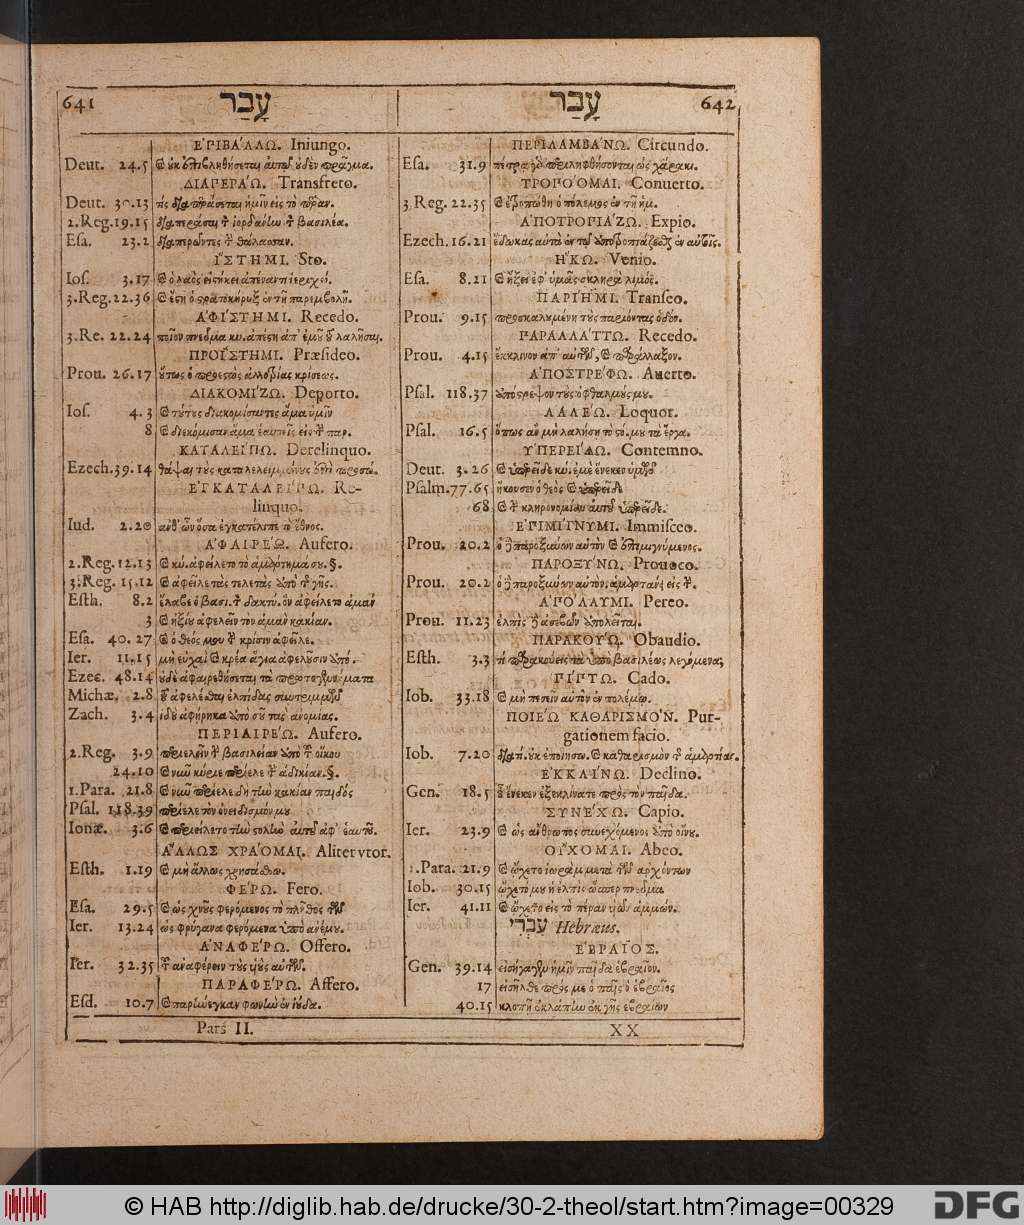 641 עָבַר
ἘΠΙΒΆΛΛΩ. Iniungo.
Deut. 24.5 ϗ οὐκ ἐπιβληθήσεται αὐτῷ οὐδὲν πρᾶγμα.
ΔΙΑΠΕΡΆΩ. Transfreto.
Deut. 30.13 τίς διαπεράσεται ἡμῖν εἰς τὸ πέραν.
2.Reg. 19.15 διαπεράσαι τ̀ ἰορδάνlω τ̀ βασιλέα.
Esa. 23.2 διαπερῶντες τ̀ θάλασσαν.
ἽΣΤΗΜΙ. Sto.
Ios. 3.17 ϗ ὁ λαὸς εἱστήκει ἀπέναντι ἱεριχώ.
3.Reg. 22.36 ϗ ἔστη ὁ στρατοκήρυξ ἐν τῇ παρεμβολῇ.
ἈΦΊΣΤΗΜΙ. Recedo.
3.Re. 22.24 ποῖον πνεῦμα κυ. ἀπέστη ἀπ' ἐμοῦ τοῦ λαλῆσαι.
ΠΡΟΪ́ΣΤΗΜΙ. Præsideo.
Prou. 26.17 οὕτως ὁ προεστὼς ἀλλοτρίας κρίσεως.
ΔΙΑΚΟΜΊΖΩ. Deporto.
Ios. 4.3 ϗ τούτους διακομίσαντες ἅμα ὑμῖν
8 ϗ διεκόμισαν ἅμα ἑαυτοῖς εἰς τ̀ παρ.
ΚΑΤΑΛΕΊΠΩ. Derelinquo.
Ezech. 39.14 θάψαι τοὺς καταλελειμμένους ἐπὶ προσώ.
ἘΓΚΑΤΑΛΕΊΠΩ. Re-
linquo.
Iud. 2.20 ἀνθ' ὧν ὅσα ἐγκατέλιπε τὸ ἔθνος.
ἈΦΑΙΡΈΩ. Aufero.
2.Reg. 12.13 ϗ κυ. ἀφείλετο τὸ ἁμάρτημά σου. §.
3.Reg. 15.12 ϗ ἀφεῖλε τὰς τελετὰς ἀπὸ τ̂ γῆς.
Esth. 8.2 ἔλαβε ὁ βασι. τ̀ δακτύ. ὃν ἀφείλετο ἀμάν
3 ϗ ἠξίου ἀφελεῖν τὸν ἀμὰν κακίαν.
Esa. 40.27 ϗ ὁ θεός μου τ̀ κρίσιν ἀφεῖλε.
Ier. 11.15 μὴ εὐχαὶ ϗ κρέα ἅγια ἀφελοῦσιν ἀπό.
Ezec. 48.14 οὐδὲ ἀφαιρεθήσεται τὰ πρωτογεννήματα
Michæ. 2.8 τοῦ ἀφελέσθαι ἐλπίδας συντριμμοῦ
Zach. 3.4 ἰδοὺ ἀφῄρηκα ἀπὸ σοῦ τὰς ἀνομίας.
ΠΕΡΙΑΙΡΈΩ. Aufero.
2.Reg. 3.9 περιελεῖν τ̀ βασιλείαν ἀπὸ τοῦ οἴκου
24.10 ϗ νῦν κύριε περίελε τ̀ ἀδικίαν. §.
1.Para. 21.8 ϗ νῦν περίελε δὴ τlὼ κακίαν παιδός
Psal. 118.39 περίελε τὸν ὀνειδισμόν μου
Ionæ. 3.6 ϗ περιείλετο τlὼ στολlὼ αὐτοῦ ἀφ' ἑαυτοῦ.
ἌΛΛΩΣ ΧΡΆΟΜΑΙ. Aliter vtor.
Esth. 1.19 ϗ μὴ ἄλλως χρησάσθω.
ΦΈΡΩ. Fero.
Esa. 29.5 ϗ ὡς χνοῦς φερόμενος τὸ πλῆθος τῶν
Ier. 13.24 ὡς φρύγανα φερόμενα ὑπὸ ἀνέμου.
ἈΝΑΦΈΡΩ. Offero.
Ier. 32.35 τοῦ ἀναφέρειν τοὺς υἱοὺς αὐτῶν.
ΠΑΡΑΦΈΡΩ. Affero.
Esd. 10.7 ϗ παρlώεγκαν φωνlὼ ἐν ἰούδα.
Pars II.
עָבַר 642
ΠΕΡΙΛΑΜΒΆΝΩ. Circundo.
Esa. 31.9 πέτρᾳ γὰρ περιληφθήσονται ὡς χάρακι.
ΤΡΟΠΌΟΜΑΙ. Conuerto.
3.Reg. 22.35 ϗ ἐτροπώθη ὁ πόλεμος ἐν τῇ ἡμ.
ἈΠΟΤΡΟΠΙΆΖΩ. Expio.
Ezech. 16.21 ἔδωκας αὐτὰ ἐν τῷ ἀποτροπιάζεσθαι ἐν αὐτοῖς.
ἭΚΩ. Venio.
Esa. 8.21 ϗ ἥξει ἐφ' ὑμᾶς σκληρὰ λιμός.
ΠΆΡΙΗΜΙ. Transeo.
Prou. 9.15 προσκαλουμένη τοὺς παριόντας ὁδόν.
ΠΑΡΑΛΛΆΤΤΩ. Recedo.
Prou. 4.15 ἔκκλινον ἀπ' αὐτῶν, ϗ παράλλαξον.
ἈΠΟΣΤΡΈΦΩ. Auerto.
Psal. 118.37 ἀπόστρεψον τοὺς ὀφθαλμούς μου.
ΛΑΛΈΩ. Loquor.
Psal. 16.5 ὅπως ἂν μὴ λαλήσῃ τὸ στό. μου τὰ ἔργα.
ὙΠΕΡΕΊΔΩ. Contemno.
Deut. 3.26 ϗ ὑπερεῖδε κυ. ἐμὲ ἕνεκεν ὑμῶν
Psalm. 77.65 ἤκουσεν ὁ θεὸς ϗ ὑπερεῖδε
68 ϗ τ̀ κληρονομίαν αὐτοῦ ὑπερεῖδε.
ἘΠΙΜΊΓΝΥΜΙ. Immisceo.
Prou. 20.2 ὁ δὲ παροξύνων αὐτὸν ϗ ἐπιμιγνύμενος.
ΠΑΡΟΞΎΝΩ. Prouoco.
Prou. 20.2 ὁ δὲ παροξύνων αὐτὸν, ἁμαρτάνει εἰς τ̀.
ἈΠΌΛΛΥΜΙ. Pereo.
Prou. 11.23 ἐλπὶς δὲ ἀσεβῶν ἀπολεῖται.
ΠΑΡΑΚΟΎΩ. Obaudio.
Esth. 3.3 τί παρακούεις τὰ ὑπὸ βασιλέως λεγόμενα;
ΠΊΠΤΩ. Cado.
Iob. 33.18 ϗ μὴ πεσεῖν αὐτὸν ἐν πολέμῳ.
ΠΟΙΈΩ ΚΑΘΑΡΙΣΜΌΝ. Pur-
gationem facio.
Iob. 7.20 διατί. οὐκ ἐποίησω. ϗ καθαρισμὸν τ̂ ἁμαρτίας.
ἘΚΚΛΊΝΩ. Declino.
Gen. 18.5 οὗ ἕνεκεν ἐξεκλίνατε πρὸς τὸν παῖδα.
ΣΥΝΈΧΩ. Capio.
Ier. 23.9 ϗ ὡς ἄνθρωπος συνεχόμενος ἀπὸ οἴνου.
ΟἼΧΟΜΑΙ. Abeo.
.Para. 21.9 ϗ ᾤχετο ἰωρὰμ μετὰ τῶν ἀρχόντων
Iob. 30.15 ᾤχετό μου ἡ ἐλπὶς ὥσπερ πνεῦμα.
Ier. 41.11 ϗ ᾤχετο εἰς τὸ πέραν υἱῶν ἀμμών.
עִבְרִי Hebræus.
ἙΒΡΑῖΟΣ.
Gen. 39.14 εἰσήγαγεν ἡμῖν παῖδα ἑβραῖον.
17 εἰσῆλθε πρός με ὁ παῖς ὁ ἑβραῖος
40.15 κλοπῇ ἐκλάπlω ἐκ γῆς ἑβραίων
XX
© HAB http://diglib.hab.de/drucke/30-2-theol/start.htm?image=00329
DFG